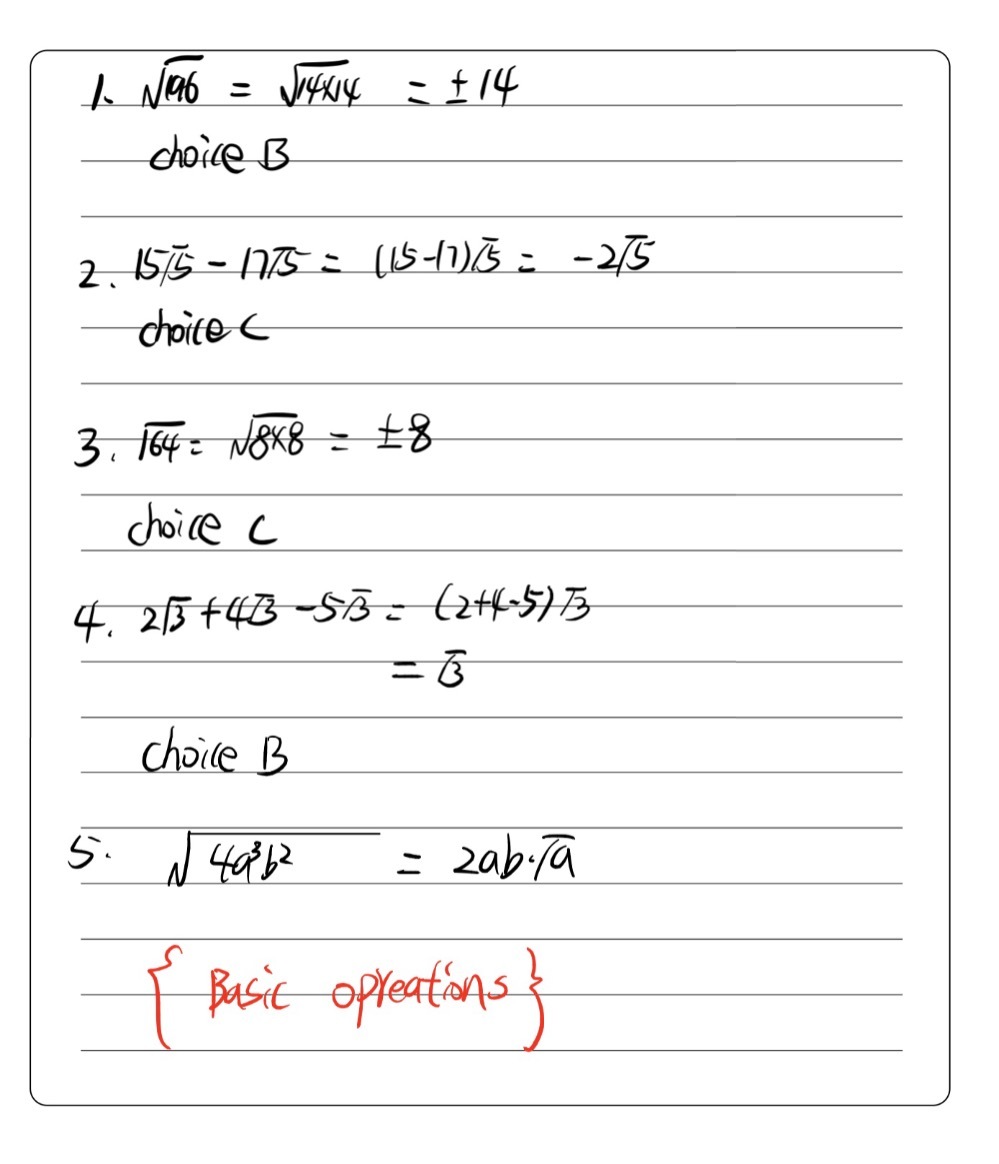 1. √196 = √14×14 = ±14
choice B
2. 15√5 - 17√5 = (15-17)√5 = -2√5
choice C
3. √64 = √8×8 = ±8
choice C
4. 2√3 + 4√3 - 5√3 = (2+4-5)√3
= √3
choice B
5. √4a³b² = 2ab·√a
{ Basic opreations }